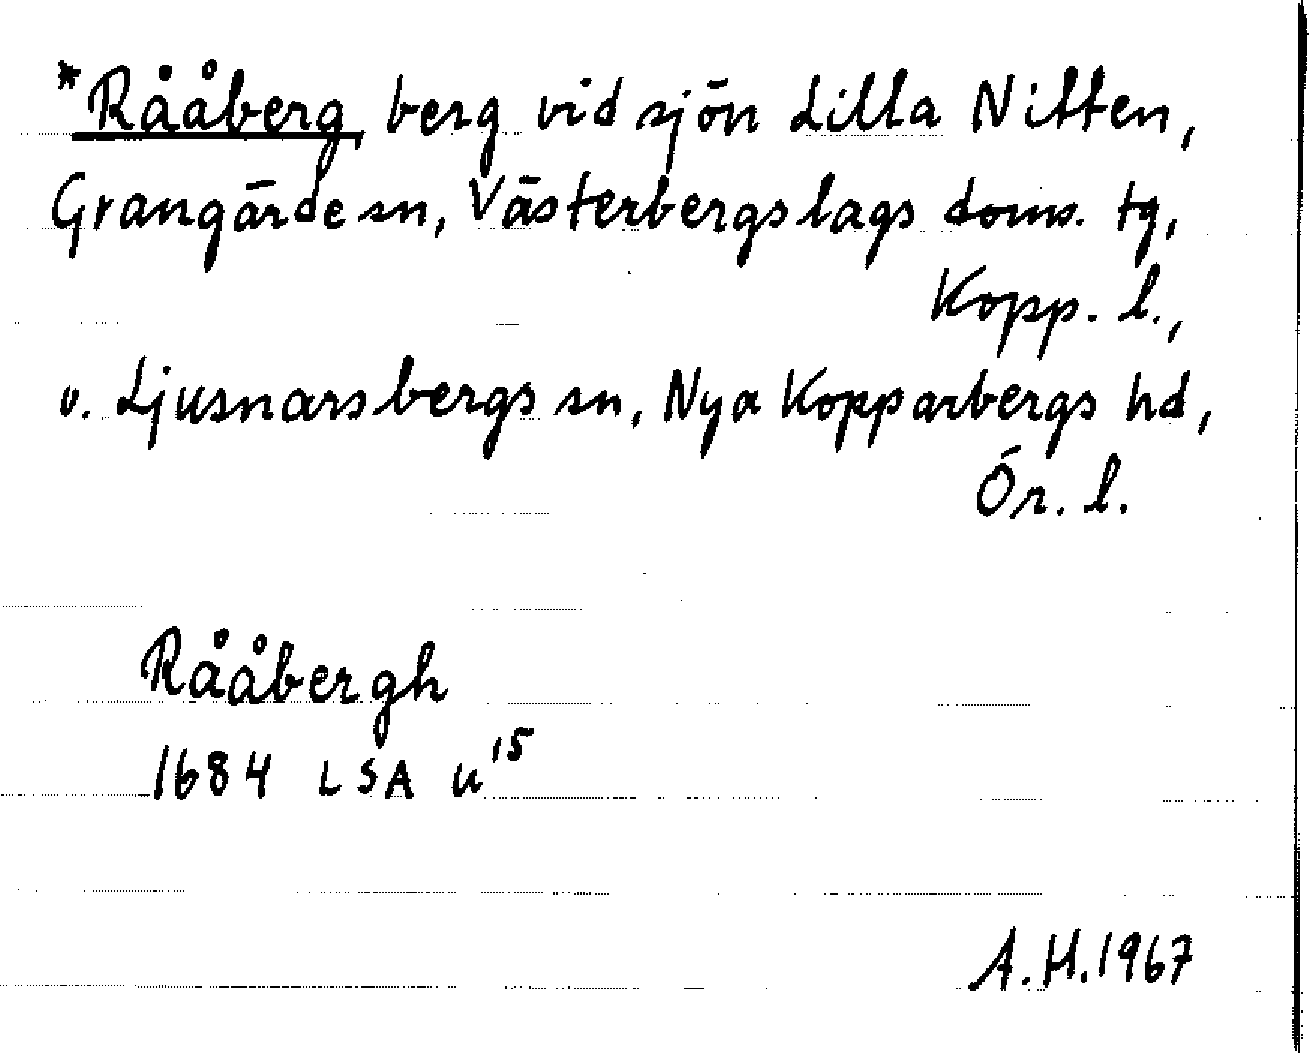 *Rååberg, berg vid sjön Lilla Nitten,
Grangärde sn, Västerbergslags doms. tg,
Kopp. l.,
o. Ljusnarsbergs sn, Nya Kopparbergs hd,
Ör. l.
Rååbergh
1684 LSA u15
A.H. 1967